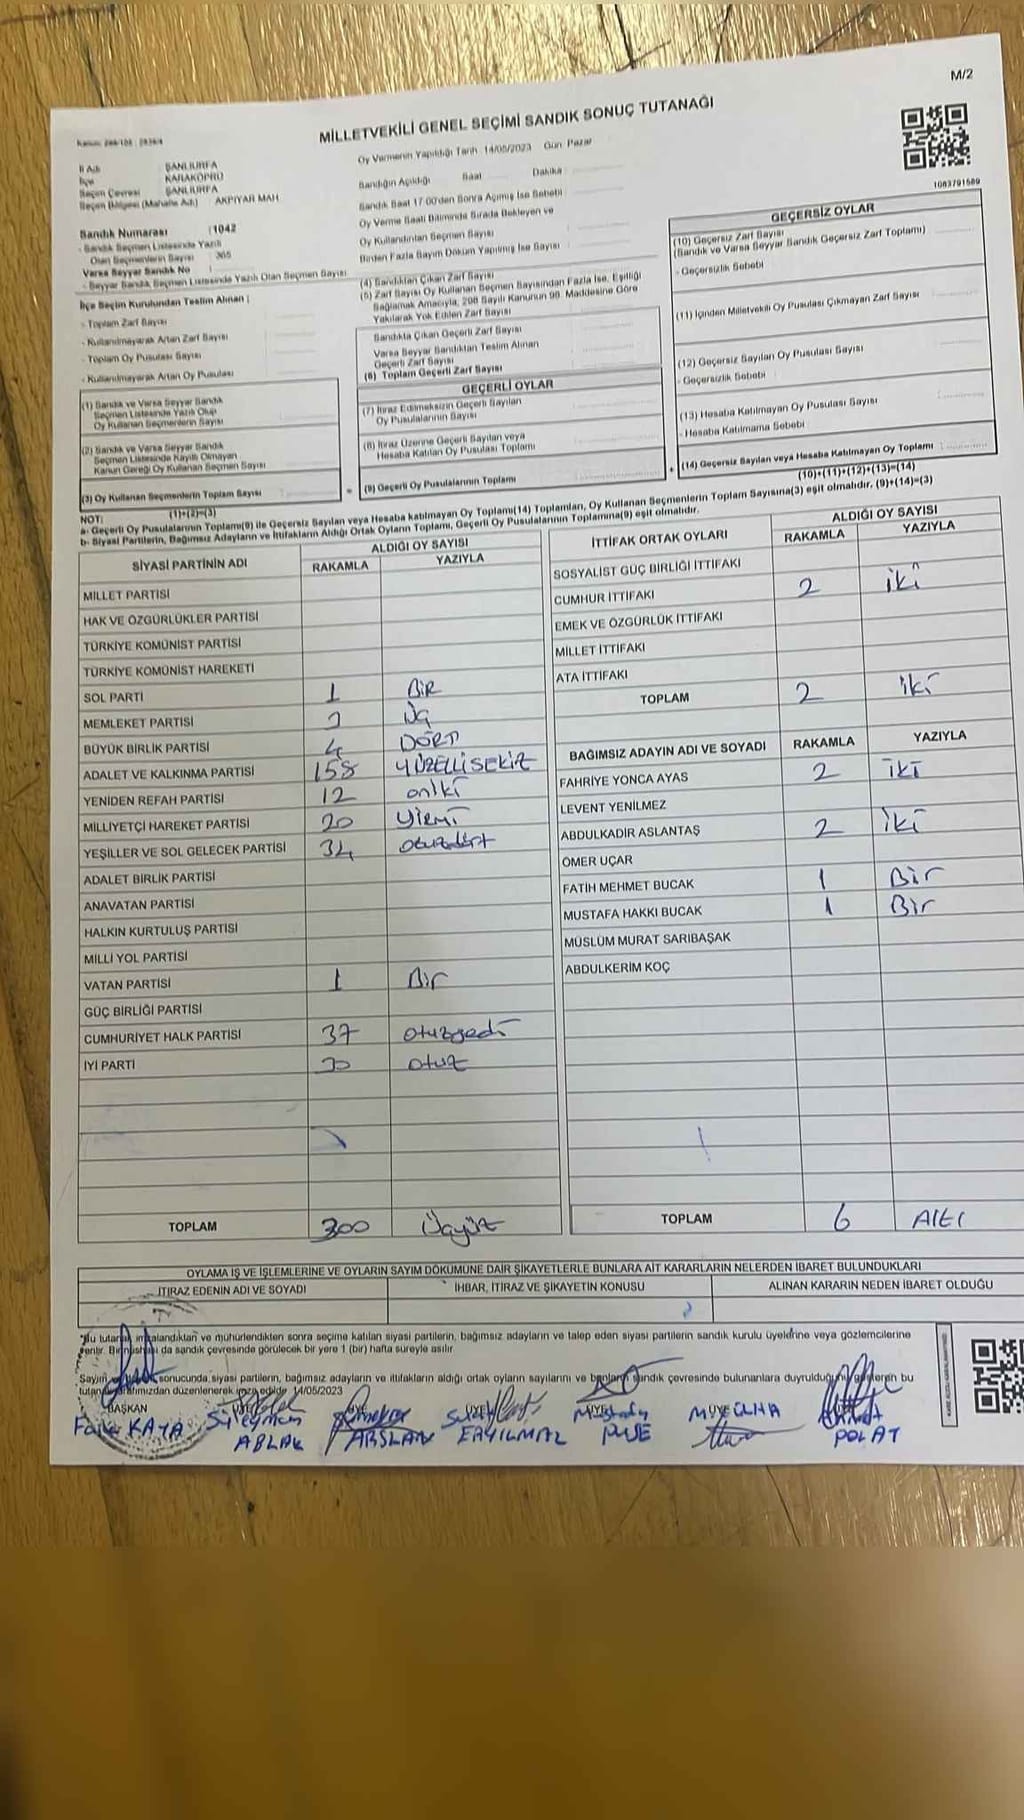 M/2
MİLLETVEKİLİ GENEL SEÇİMİ SANDIK SONUÇ TUTANAĞI
1083791589
İl Adı ŞANLIURFA
İlçe KARAKÖPRÜ
Seçim Çevresi ŞANLIURFA
Seçim Bölgesi (Mahalle Adı) AKPIYAR MAH.
Sandık Numarası 1042
- Sandık Seçmen Listesinde Yazılı
Olan Seçmenlerin Sayısı 365
Varsa Seyyar Sandık No
- Seyyar Sandık Seçmen Listesinde Yazılı Olan Seçmen Sayısı
Oy Vermenin Yapıldığı Tarih 14/05/2023 Gün Pazar
Sandığın Açıldığı Saat Dakika
Sandık Saat 17:00'den Sonra Açılmış İse Sebebi
Oy Verme Saati Bitiminde Sırada Bekleyen ve
Oy Kullandırılan Seçmen Sayısı
Birden Fazla Sayım Döküm Yapılmış İse Sayısı
İlçe Seçim Kurulundan Teslim Alınan ;
- Toplam Zarf Sayısı
- Kullanılmayarak Artan Zarf Sayısı
- Toplam Oy Pusulası Sayısı
- Kullanılmayarak Artan Oy Pusulası
(1) Sandık ve Varsa Seyyar Sandık
Seçmen Listesinde Yazılı Olup
Oy Kullanan Seçmenlerin Sayısı
(2) Sandık ve Varsa Seyyar Sandık
Seçmen Listesinde Kayıtlı Olmayan
Kanun Gereği Oy Kullanan Seçmen Sayısı
(3) Oy Kullanan Seçmenlerin Toplam Sayısı
(1)+(2)=(3)
(4) Sandıktan Çıkan Zarf Sayısı
(5) Zarf Sayısı Oy Kullanan Seçmen Sayısından Fazla İse, Eşitliği
Sağlamak Amacıyla, 298 Sayılı Kanunun 98. Maddesine Göre
Yakılarak Yok Edilen Zarf Sayısı
Sandıkta Çıkan Geçerli Zarf Sayısı
Varsa Seyyar Sandıktan Teslim Alınan
Geçerli Zarf Sayısı
(6) Toplam Geçerli Zarf Sayısı
GEÇERLİ OYLAR
(7) İtiraz Edilmeksizin Geçerli Sayılan
Oy Pusulalarının Sayısı
(8) İtiraz Üzerine Geçerli Sayılan veya
Hesaba Katılan Oy Pusulası Toplamı
(9) Geçerli Oy Pusulalarının Toplamı
GEÇERSİZ OYLAR
(10) Geçersiz Zarf Sayısı
(Sandık ve Varsa Seyyar Sandık Geçersiz Zarf Toplamı)
- Geçersizlik Sebebi
(11) İçinden Milletvekili Oy Pusulası Çıkmayan Zarf Sayısı
(12) Geçersiz Sayılan Oy Pusulası Sayısı
- Geçersizlik Sebebi
(13) Hesaba Katılmayan Oy Pusulası Sayısı
- Hesaba Katılmama Sebebi
(14) Geçersiz Sayılan veya Hesaba Katılmayan Oy Toplamı
(10)+(11)+(12)+(13)=(14)
NOT:
a- Geçerli Oy Pusulalarının Toplamı(9) ile Geçersiz Sayılan veya Hesaba katılmayan Oy Toplamı(14) Toplamları, Oy Kullanan Seçmenlerin Toplam Sayısına(3) eşit olmalıdır, (9)+(14)=(3)
b- Siyasi Partilerin, Bağımsız Adayların ve İttifakların Aldığı Ortak Oyların Toplamı, Geçerli Oy Pusulalarının Toplamına(9) eşit olmalıdır.
SİYASİ PARTİNİN ADI ALDIĞI OY SAYISI
RAKAMLA YAZIYLA
MİLLET PARTİSİ
HAK VE ÖZGÜRLÜKLER PARTİSİ
TÜRKİYE KOMÜNİST PARTİSİ
TÜRKİYE KOMÜNİST HAREKETİ
SOL PARTİ 1 BİR
MEMLEKET PARTİSİ 3 Üç
BÜYÜK BİRLİK PARTİSİ 4 DÖRT
ADALET VE KALKINMA PARTİSİ 158 YÜZELLİSEKİZ
YENİDEN REFAH PARTİSİ 12 oniki
MİLLİYETÇİ HAREKET PARTİSİ 20 yirmi
YEŞİLLER VE SOL GELECEK PARTİSİ 34 otuzdört
ADALET BİRLİK PARTİSİ
ANAVATAN PARTİSİ
HALKIN KURTULUŞ PARTİSİ
MİLLİ YOL PARTİSİ
VATAN PARTİSİ 1 Bir
GÜÇ BİRLİĞİ PARTİSİ
CUMHURİYET HALK PARTİSİ 37 otuzyedi
İYİ PARTİ 30 otuz
TOPLAM 300 Üçyüz
İTTİFAK ORTAK OYLARI ALDIĞI OY SAYISI
RAKAMLA YAZIYLA
SOSYALİST GÜÇ BİRLİĞİ İTTİFAKI
CUMHUR İTTİFAKI 2 iki
EMEK VE ÖZGÜRLÜK İTTİFAKI
MİLLET İTTİFAKI
ATA İTTİFAKI
TOPLAM 2 iki
BAĞIMSIZ ADAYIN ADI VE SOYADI RAKAMLA YAZIYLA
FAHRİYE YONCA AYAS 2 iki
LEVENT YENİLMEZ
ABDULKADİR ASLANTAŞ 2 iki
ÖMER UÇAR
FATİH MEHMET BUCAK 1 Bir
MUSTAFA HAKKI BUCAK 1 Bir
MÜSLÜM MURAT SARIBAŞAK
ABDULKERİM KOÇ
TOPLAM 6 Altı
OYLAMA İŞ VE İŞLEMLERİNE VE OYLARIN SAYIM DÖKÜMÜNE DAİR ŞİKAYETLERLE BUNLARA AİT KARARLARIN NELERDEN İBARET BULUNDUKLARI
İTİRAZ EDENİN ADI VE SOYADI İHBAR, İTİRAZ VE ŞİKAYETİN KONUSU ALINAN KARARIN NEDEN İBARET OLDUĞU
"Bu tutanak imzalandıktan ve mühürlendikten sonra seçime katılan siyasi partilerin, bağımsız adayların ve talep eden siyasi partilerin sandık kurulu üyelerine veya gözlemcilerine
verilir. Bir nüshası da sandık çevresinde görülecek bir yere 1 (bir) hafta süreyle asılır.
Sayım sonucunda, siyasi partilerin, bağımsız adayların ve ittifakların aldığı ortak oyların sayılarını ve bunların sandık çevresinde bulunanlara duyrulduğunu gösteren bu
tutanak tarafımızdan düzenlenerek imza edildi. 14/05/2023
BAŞKAN ÜYE ÜYE ÜYE ÜYE ÜYE ÜYE
KAYA Süleyman ABLAK ARSLAN ERYILMAZ POLAT